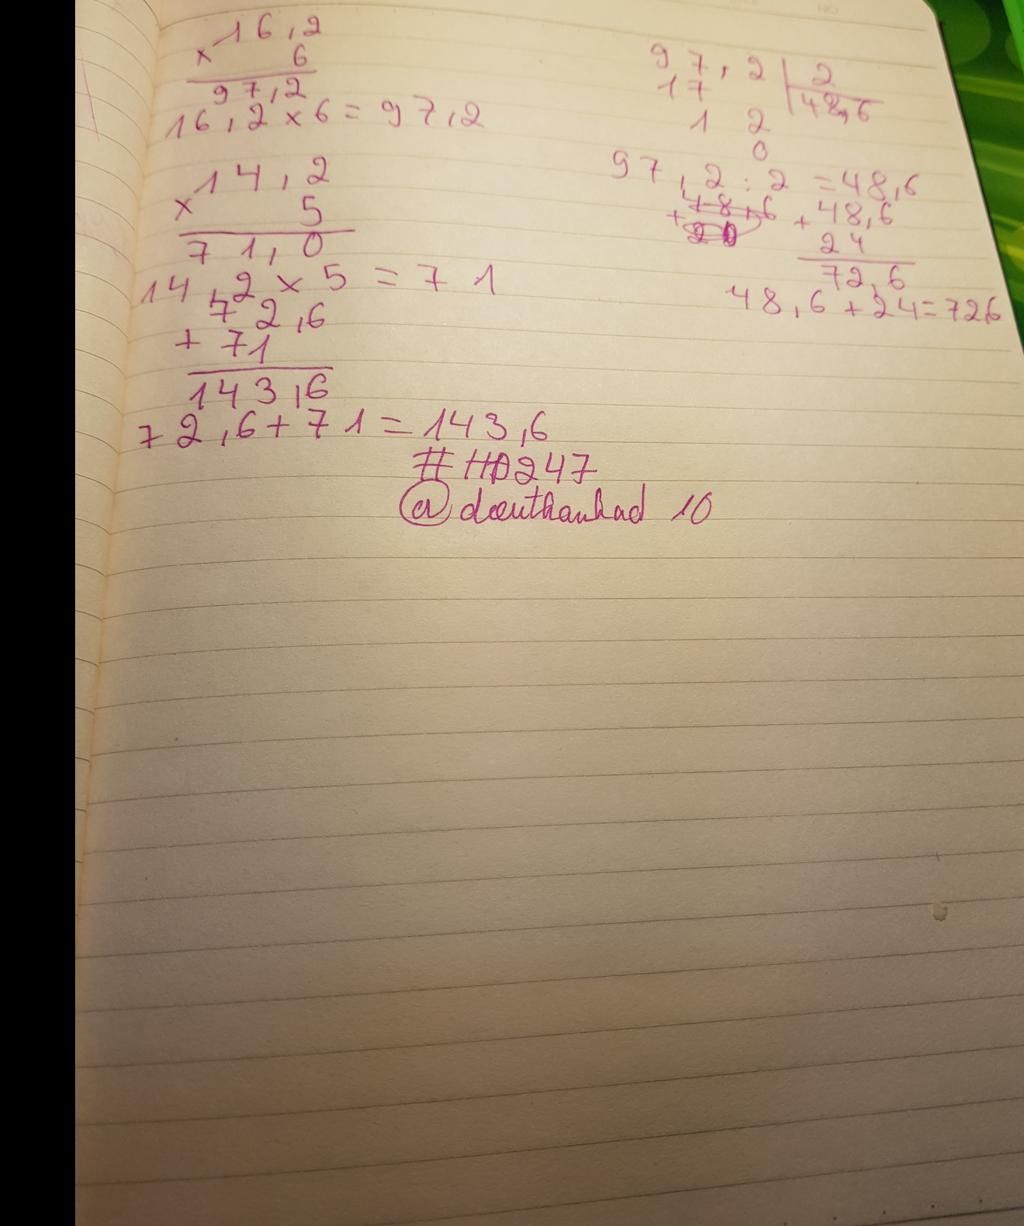 16,2
× 6
97,2
16,2 × 6 = 97,2
14,2
× 5
71,0
14,2 × 5 = 71
72,6
+ 71
143,6
72,6 + 71 = 143,6
97,2 | 2
17 48,6
1 2
0
97,2 : 2 = 48,6
48,6
+ 20
+ 48,6
24
72,6
48,6 + 24 = 72,6
#HD247
10